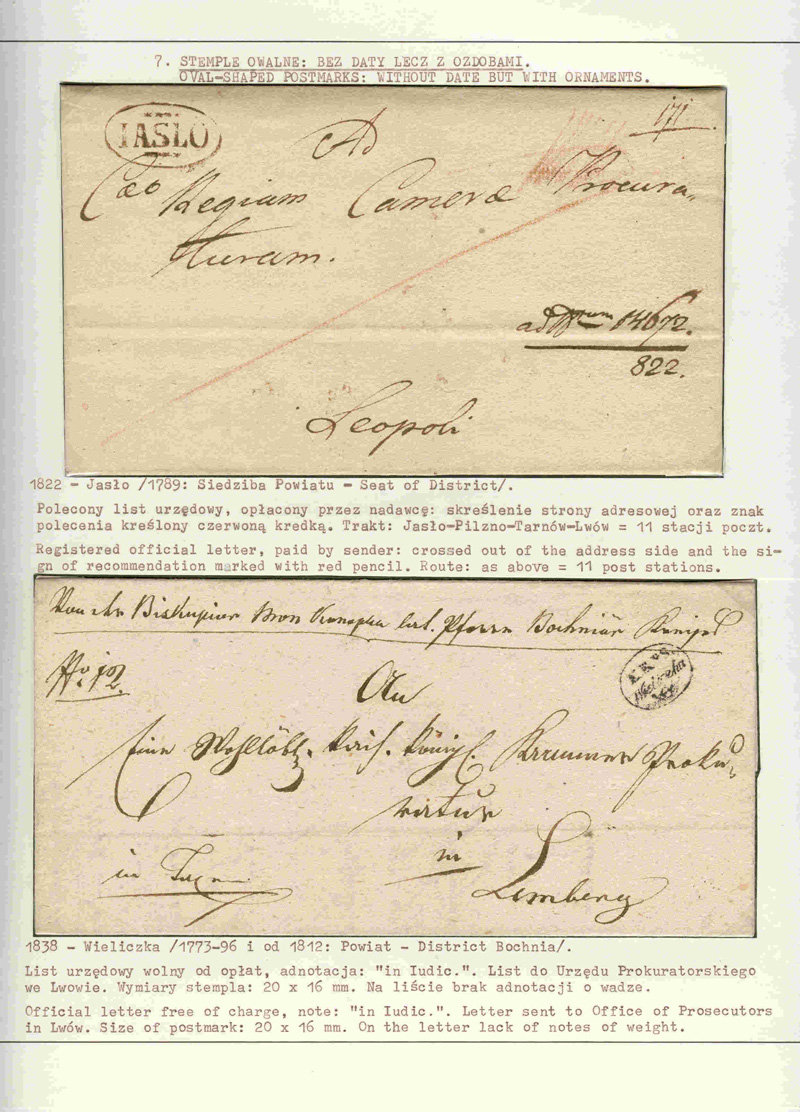 7. STEMPLE OWALNE: BEZ DATY LECZ Z OZDOBAMI.
OVAL-SHAPED POSTMARKS: WITHOUT DATE BUT WITH ORNAMENTS.
IASLO
171
Ad
Caeo Regiam Camerae Procura-
turam.
ad Nrum 14672.
822.
Leopoli
1822 - Jasło /1789: Siedziba Powiatu - Seat of District/.
Polecony list urzędowy, opłacony przez nadawcę: skreślenie strony adresowej oraz znak
polecenia kreślony czerwoną kredką. Trakt: Jasło-Pilzno-Tarnów-Lwów = 11 stacji poczt.
Registered official letter, paid by sender: crossed out of the address side and the si-
gn of recommendation marked with red pencil. Route: as above = 11 post stations.
Von der Pfarre Bochniär Kreises
No 12.
Wieliczka
An
Eine Wohllöbl. kais. königl. Kammer Proku-
ratur
in
in
Lemberg
1838 - Wieliczka /1773-96 i od 1812: Powiat - District Bochnia/.
List urzędowy wolny od opłat, adnotacja: "in Iudic.". List do Urzędu Prokuratorskiego
we Lwowie. Wymiary stempla: 20 x 16 mm. Na liście brak adnotacji o wadze.
Official letter free of charge, note: "in Iudic.". Letter sent to Office of Prosecutors
in Lwów. Size of postmark: 20 x 16 mm. On the letter lack of notes of weight.